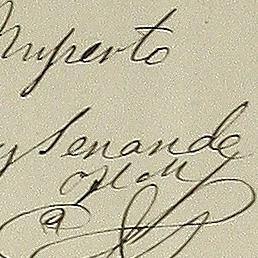 Ruperto
y Senande